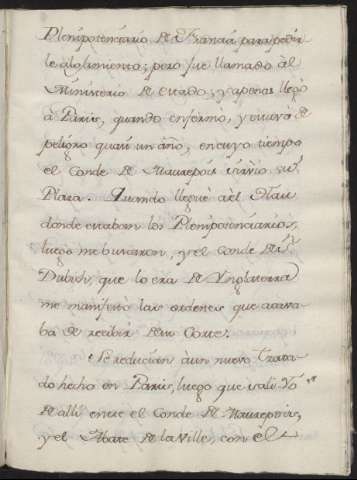 Plenipotenciario de Francia para pedir
le alojamiento; pero fue llamado àl
Ministerio de Estado, y apenas llegò
à Paris, quando enfermo, y estuvò de
peligro quasi un año, en cuyo tiempo
el Conde de Maurepas sirviò su
Plaza. Quando lleguè àèl Hau
donde estaban los Plenipotenciarios,
luego me buscaron, y el Conde de Sn.
Dubich, que lo era de Ynglaterra
me manifestò las ordenes que acava-
ba de recibir de su Corte.
Se reducian àun nuevo trata-
do hecho en Paris, luego que salì Yo
de alli entre el Conde de Maurepas,
y el Abate de la Ville, con el